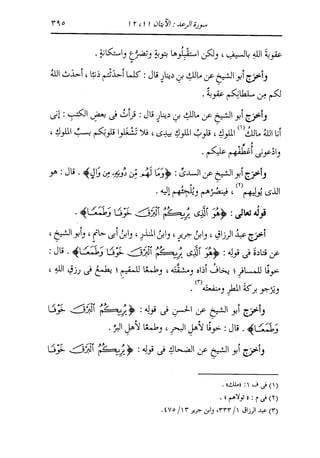 سورة الرعد : الآيتان ١١ ، ١٢ ٣٩٥
عقوبةَ اللهِ بالسيفِ ، ولكن استَقبِلُوها بتوبةٍ وتضرُّعٍ واستكانةٍ .
وأخرَج أبو الشيخِ عن مالكِ بنِ دينارٍ قال : كلما أحدَثْتُم ذنبًا ، أحدَث اللهُ
لكم مِن سلطانِكم عقوبةً .
وأخرَج أبو الشيخِ عن مالكِ بنِ دينارٍ قال : قرأتُ في بعضِ الكتبِ : إنى
أنا اللهُ مالكُ(١) الملوكِ ، قلوبُ الملوكِ بيدِى ، فلا تَشْغَلوا قلوبَكم بسبِّ الملوكِ ،
وادعونى أُعَطِّفْهم عليكم .
وأخرَج أبو الشيخِ عن السدىِّ : ﴿وَمَا لَهُم مِّن دُونِهِۦ مِن وَالٍ﴾ . قال : هو
الذى يُولِيهم(٢) ، فينصُرُهم ويُلْجِئُهم إليه .
قولُه تعالى : ﴿هُوَ ٱلَّذِى يُرِيكُمُ ٱلْبَرْقَ خَوْفًا وَطَمَعًا﴾ .
أخرَج عبدُ الرزاقِ ، وابنُ جريرٍ ، وابنُ المنذرِ ، وابنُ أبى حاتمٍ ، وأبو الشيخِ ،
عن قتادةَ فى قولِه : ﴿هُوَ ٱلَّذِى يُرِيكُمُ ٱلْبَرْقَ خَوْفًا وَطَمَعًا﴾ . قال :
خوفًا للمسافرِ ؛ يخافُ أذاه ومشقَّتَه ، وطمعًا للمقيمِ ؛ يطمعُ فى رزقِ اللهِ ،
ويرجو بركةَ المطرِ ومنفعتَه(٣) .
وأخرَج أبو الشيخِ عن الحسنِ فى قولِه : ﴿يُرِيكُمُ ٱلْبَرْقَ خَوْفًا
وَطَمَعًا﴾ . قال : خوفًا لأهلِ البحرِ ، وطمعًا لأهلِ البرِّ .
وأخرَج أبو الشيخِ عن الضحاكِ فى قولِه : ﴿يُرِيكُمُ ٱلْبَرْقَ خَوْفًا
(١) فى ف ١ : «ملك» .
(٢) فى م : «تولاهم» .
(٣) عبد الرزاق ١/ ٣٣٣، وابن جرير ١٣/ ٤٧٥.